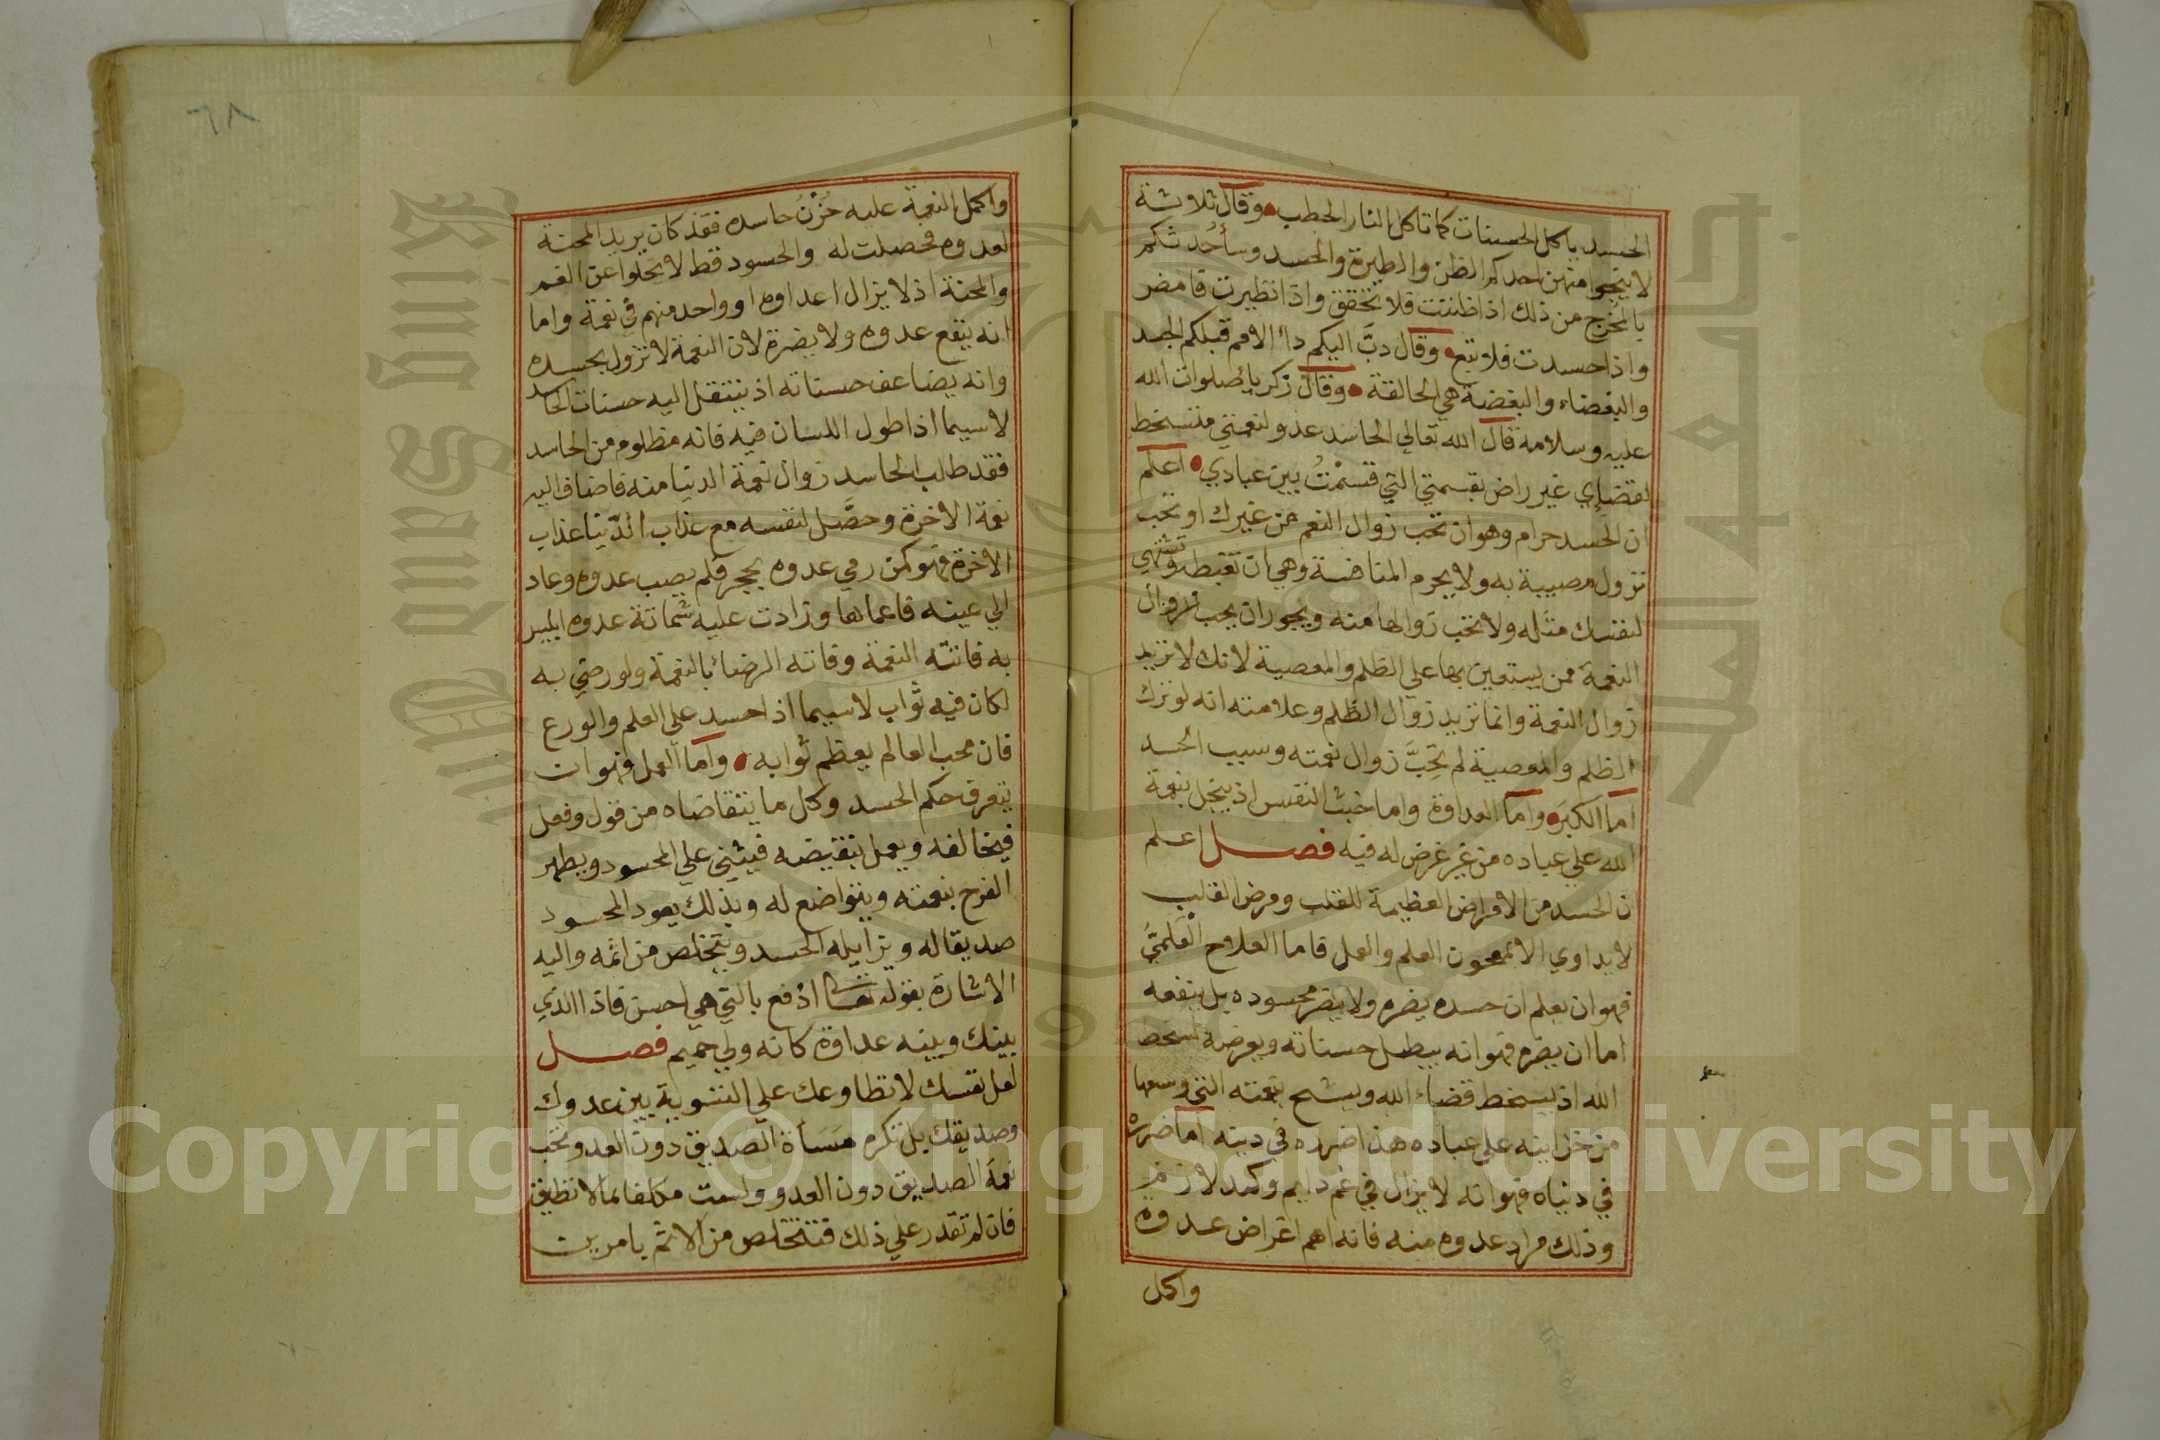 الحسد ياكل الحسنات كما تاكل النار الحطب وقال ثلاوثة
لا ينجوا منهن احدكم الظن والطيرة والحسد وسأحدثكم
بالمخرج من ذلك اذا ظننت فلا تحقق واذا تطيرت فامض
واذا حسدت فلا تبغ وقال دبَّ اليكم داء الامم قبلكم الحسد
والبغضاء والبغضة هي الحالقة وقال زكريا صلوات الله
عليه وسلامه قال الله تعالي الحاسد عدو لنعمتي متسخط
لقضاءي غير راض بقسمتي التي قسمْتُ بين عبادي اعلم
ان الحسد حرام وهو ان تحب زوال النعم من غيرك او تحب
نزول مصيبة به ولا يحرم المنافسة وهي ان تغبط وتشتهي
لنفسك مثله ولا تحب زوالها منه ويجوز ان يحب زوال
النعمة ممن يستعين بها علي الظلم والمعصية لانك لا تريد
زوال النعمة وانما تريد زوال الظلم وعلامته انه لو ترك
الظلم والمعصية لم تحِبَّ زوال نعمته وسبب الحسد
اما الكبر واما العداوة واما خبث النفس اذ يبخل بنعمة
الله علي عباده من غير غرض له فيه فصل اعلم
ان الحسد من الامراض العظيمة للقلب ومرض القلب
لا يداوي الا بمعجون العلم والعمل فاما العلاج العلمي
فهو ان يعلم ان حسده يضره ولا يضر محسوده بل ينفعه
اما ان يضره فهو انه يبطل حسناته ويعرضه لسخط
الله اذ يسخط قضاء الله ويشح بنعمته التي وسعها
من خزاينه علي عباده هذا ضرره في دينه اما ضرره
في دنياه فهو انه لا يزال في غم دايم وكمد لازم
وذلك مراد عدوه منه فانه اهم اغراض عدوه
واكمل
٦٨
واكمل النعمة عليه حُزْنُ حاسده فقد كان يريد المحنة
لعدوه فحصلت له والحسود قط لا يخلوا عن الغم
والمحنة اذ لا يزال اعداوه او واحد منهم في نعمة واما
انه ينفع عدوه ولا يضره لان النعمة لا تزول بحسده
وانه يضاعف حسناته اذ ينتقل اليه حسنات الحاسد
لا سيما اذا طول اللسان فيه فانه مظلوم من الحاسد
فقد طلب الحاسد زوال نعمة الدنيا منه فاضاف اليه
نعمة الاخرة وحصَّل لنفسه مع عذاب الدّنيا عذاب
الاخرة فهو كمن رمي عدوه بحجر فلم يصب عدوه وعاد
الي عينه فاعماها وزادت عليه شماتة عدوه ابليس
به فاتته النعمة وفاته الرضاء بالنعمة ولو رضي به
لكان فيه ثواب لا سيما اذا حسد علي العلم والورع
فان محب العالم يعظم ثوابه واما العمل فهو ان
يتعرف حكم الحسد وكل ما يتقاضاه من قول وفعل
فيخالفه ويعمل بنقيضه فيثني علي المحسود ويظهر
الفرح بنعمته ويتواضع له وبذلك يعود المحسود
صديقا له ويزايله الحسد ويتخلص من اثمه واليه
الاشارة بقوله تعالى ادفع بالتي هي احسن فاذا الذي
بينك وبينه عداوة كانه ولي حميم فصل
لعل نفسك لا تطاوعك علي التسوية بين عدوك
وصديقك بل تكره مساءة الصديق دون العدو وتحب
نعمة الصديق دون العدو ولست مكلفا بما لا تطيق
فان لم تقدر علي ذلك فتتخلص من الاثم بامرين
Copyright © King Saud University
King Saud University
جامعة الملك سعود
1957